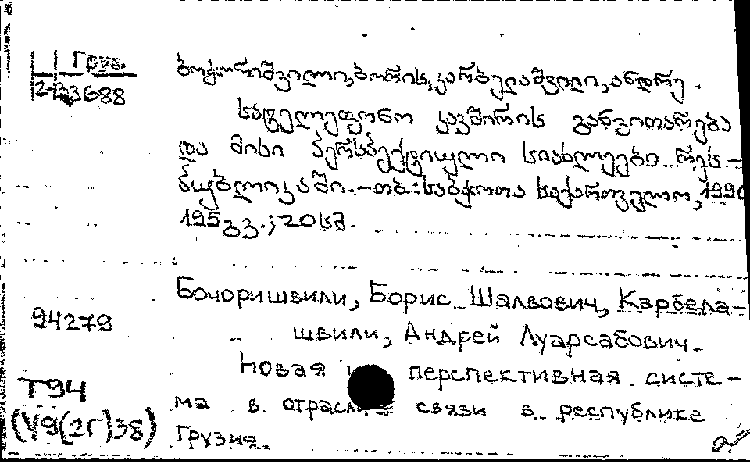 Груз
2-33688
ბოჭორიშვილი, ბორის, კარბელაშვილი, ანდრე.
სატელეფონო კავშირის განვითარება
და მისი პერსპექტიული სიახლეები რეს-
პუბლიკაში. – თბ.: საბჭოთა საქართველო, 1990
195 გვ.; 20 სმ.
Бочоришвили, Борис Шалвович, Карбела-
94279
швили, Андрей Луарсабович.
Новая перспективная систе-
Т94
ма в отрасли связи в республике
(У9(2Г)38)
Грузия.